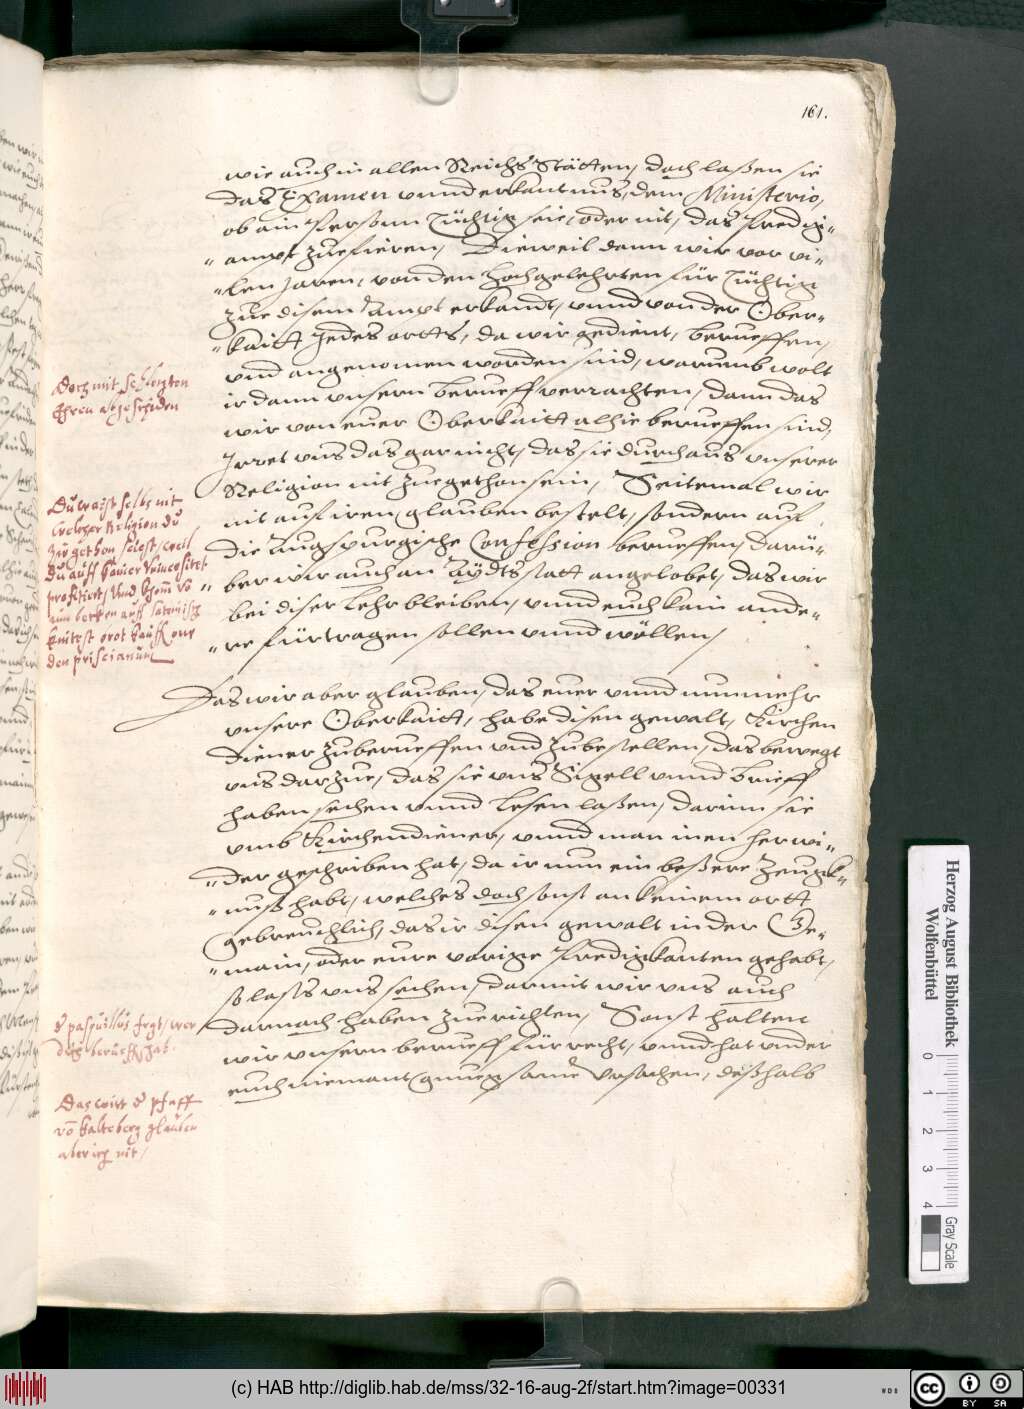 161.
wie auch in allen Reichs Stätten, doch laßen sie
das Examen vnnd erkantnus, dem Ministerio,
ob ain Persohn Tüchtig seie, oder nit, das Predig=
=ampt zuefieren, Dieweil dann wir vor vi=
=len Jaren, von den Hochgelehrten für Tüchtig
zue disem Ampt erkandt, vnnd von der Ober=
=kaitt Jedes ortts, da wir gedient, berueffen,
vnd angenomen worden sind, warumb wolt
ir dann vnsern berueff verrachten, dann das
wir von eurer Oberkaitt alhie berueffen sind,
Irret vns das gar nicht, das sie durchaus vnserer
Religion nit zuegethon sein, Seitemal wir
nit auf iren glauben bestelt, sondern auf
die Augspurgische Confession berueffen, darü=
=ber wir auch an Aydts statt angelobet, das wir
bei diser Lehr bleiben, vnnd euch kain ande=
=re fürtragen sollen vnnd wöllen,
Das wir aber glauben, das euer vnnd nunmehr
vnsere Oberkaitt, habe disen gewalt, Kirchen
Diener zuberueffen vnd zubestellen, das bewegt
vns darzue, das sie vns Sigell vnnd brieff
haben sechen vnnd Lesen laßen, darinn sie
vmb Kirchendiener, vnnd man inen herwi=
=der geschriben hat, da ir nun ein beßere Zeugk=
=nuß habt, welches doch sonst an keinem ortt
gebreuchlich, das ir disen gewalt in der Ge=
=main, oder eure vorige Predigkanten gehabt,
so lasts vns sechen, darmit wir vns auch
darnach haben zuerichten, Sonst halten
wir vnsern berueff für recht, vnnd hat vnder
euch niemant gnuegsame Vrsachen, deßhalb
Doch mit schlechten
Ehren abgeschiden
Du waist selbs nit
welcher Religion du
zugethon selest, weil
du auff
profitirt, Vnd
auff lateinisch
den priscianum
fragt, wer
dich berüefft hab.
Das wirt d pfaff
vo Kalteberg glauben
aber ich nit,
Herzog August Bibliothek
Wolfenbüttel
0 1 2 3 4
Gray Scale
(c) HAB http://diglib.hab.de/mss/32-16-aug-2f/start.htm?image=00331
WDB
cc BY SA